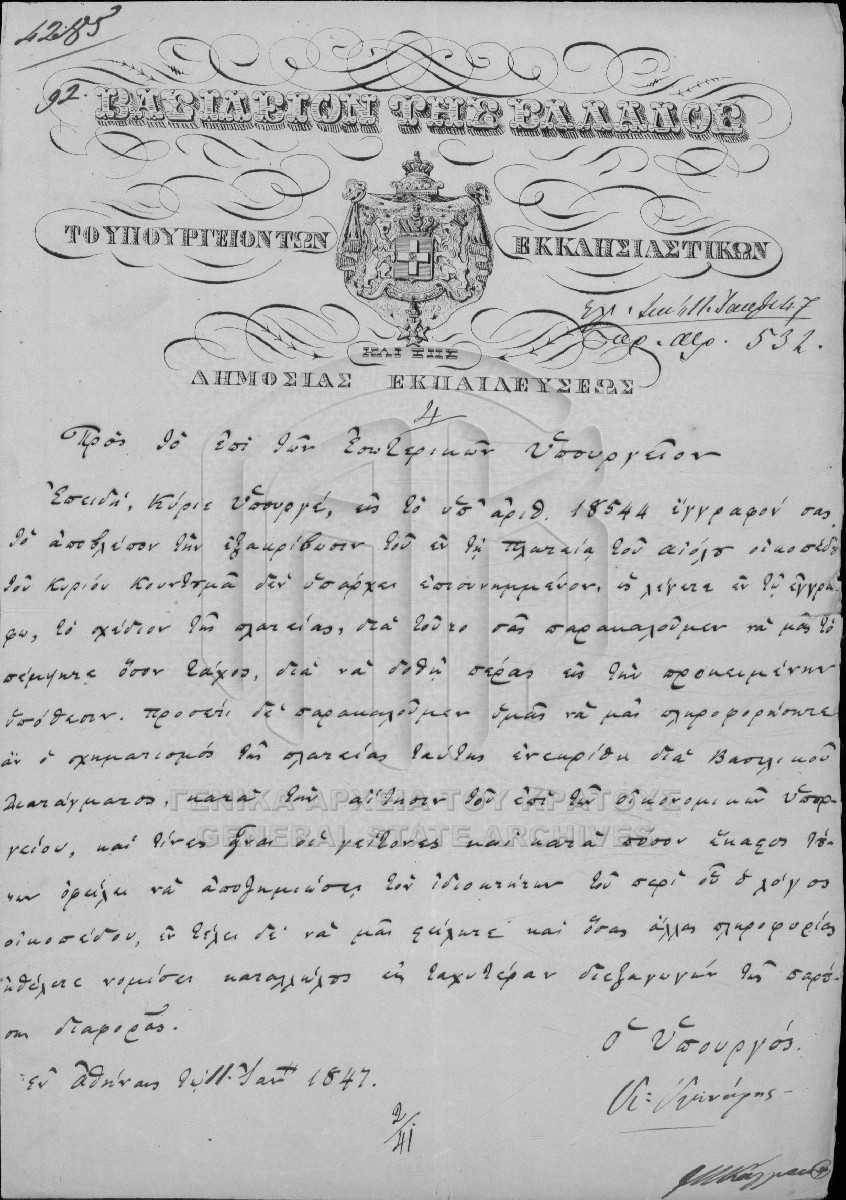 4285
92.
ΒΑΣΙΛΕΙΟΝ ΤΗΣ ΕΛΛΑΔΟΣ
ΤΟ ΥΠΟΥΡΓΕΙΟΝ ΤΩΝ ΕΚΚΛΗΣΙΑΣΤΙΚΩΝ
ΚΑΙ ΤΗΣ
ΔΗΜΟΣΙΑΣ ΕΚΠΑΙΔΕΥΣΕΩΣ
11 47
532.
4
Πρὸς τὸ ἐπὶ τῶν Ἐσωτερικῶν Ὑπουργεῖον
Ἐπειδὴ, Κύριε Ὑπουργέ, εἰς τὸ ὑπ' ἀριθ. 18544 ἔγγραφόν σας,
τὸ ἀποβλέπον τὴν ἐξακρίβωσιν τοῦ ἐν τῇ πλατείᾳ τοῦ Αἰόλου οἰκοπέδου
τοῦ Κυρίου δὲν ὑπάρχει ἐπισυνημμένον, ὡς λέγετε ἐν τῷ ἐγγρά-
φῳ, τὸ σχέδιον τῆς πλατείας, διὰ τοῦτο σᾶς παρακαλοῦμεν νὰ μᾶς τὸ
πέμψητε ὅσον τάχος, διὰ νὰ δοθῇ πέρας εἰς τὴν προκειμένην
ὑπόθεσιν. Προσέτι δὲ παρακαλοῦμεν ὑμᾶς νὰ μᾶς πληροφορήσητε
ἂν ὁ σχηματισμὸς τῆς πλατείας ταύτης ἐνεκρίθη διὰ Βασιλικοῦ
Διατάγματος, κατὰ τὴν αἴτησιν τοῦ ἐπὶ τῶν Οἰκονομικῶν Ὑπουρ-
γείου, καὶ τίνες εἶναι οἱ γείτονες καὶ κατὰ πόσον ἕκαστος τού-
των ὀφείλει νὰ ἀποζημιώσῃ τὸν ἰδιοκτήτην τοῦ περὶ οὗ ὁ λόγος
οἰκοπέδου, ἐν τέλει δὲ νὰ μᾶς στείλητε καὶ ὅσας ἄλλας πληροφορίας
ἠθέλετε νομίσει καταλλήλους εἰς ταχυτέραν διεξαγωγὴν τῆς παρού-
σης διαφορᾶς.
Ὁ Ὑπουργός.
Ἐν Ἀθήναις τῇ 11. Ἰαν. 1847.
2/41
ΓΕΝΙΚΑ ΑΡΧΕΙΑ ΤΟΥ ΚΡΑΤΟΥΣ
GENERAL STATE ARCHIVES